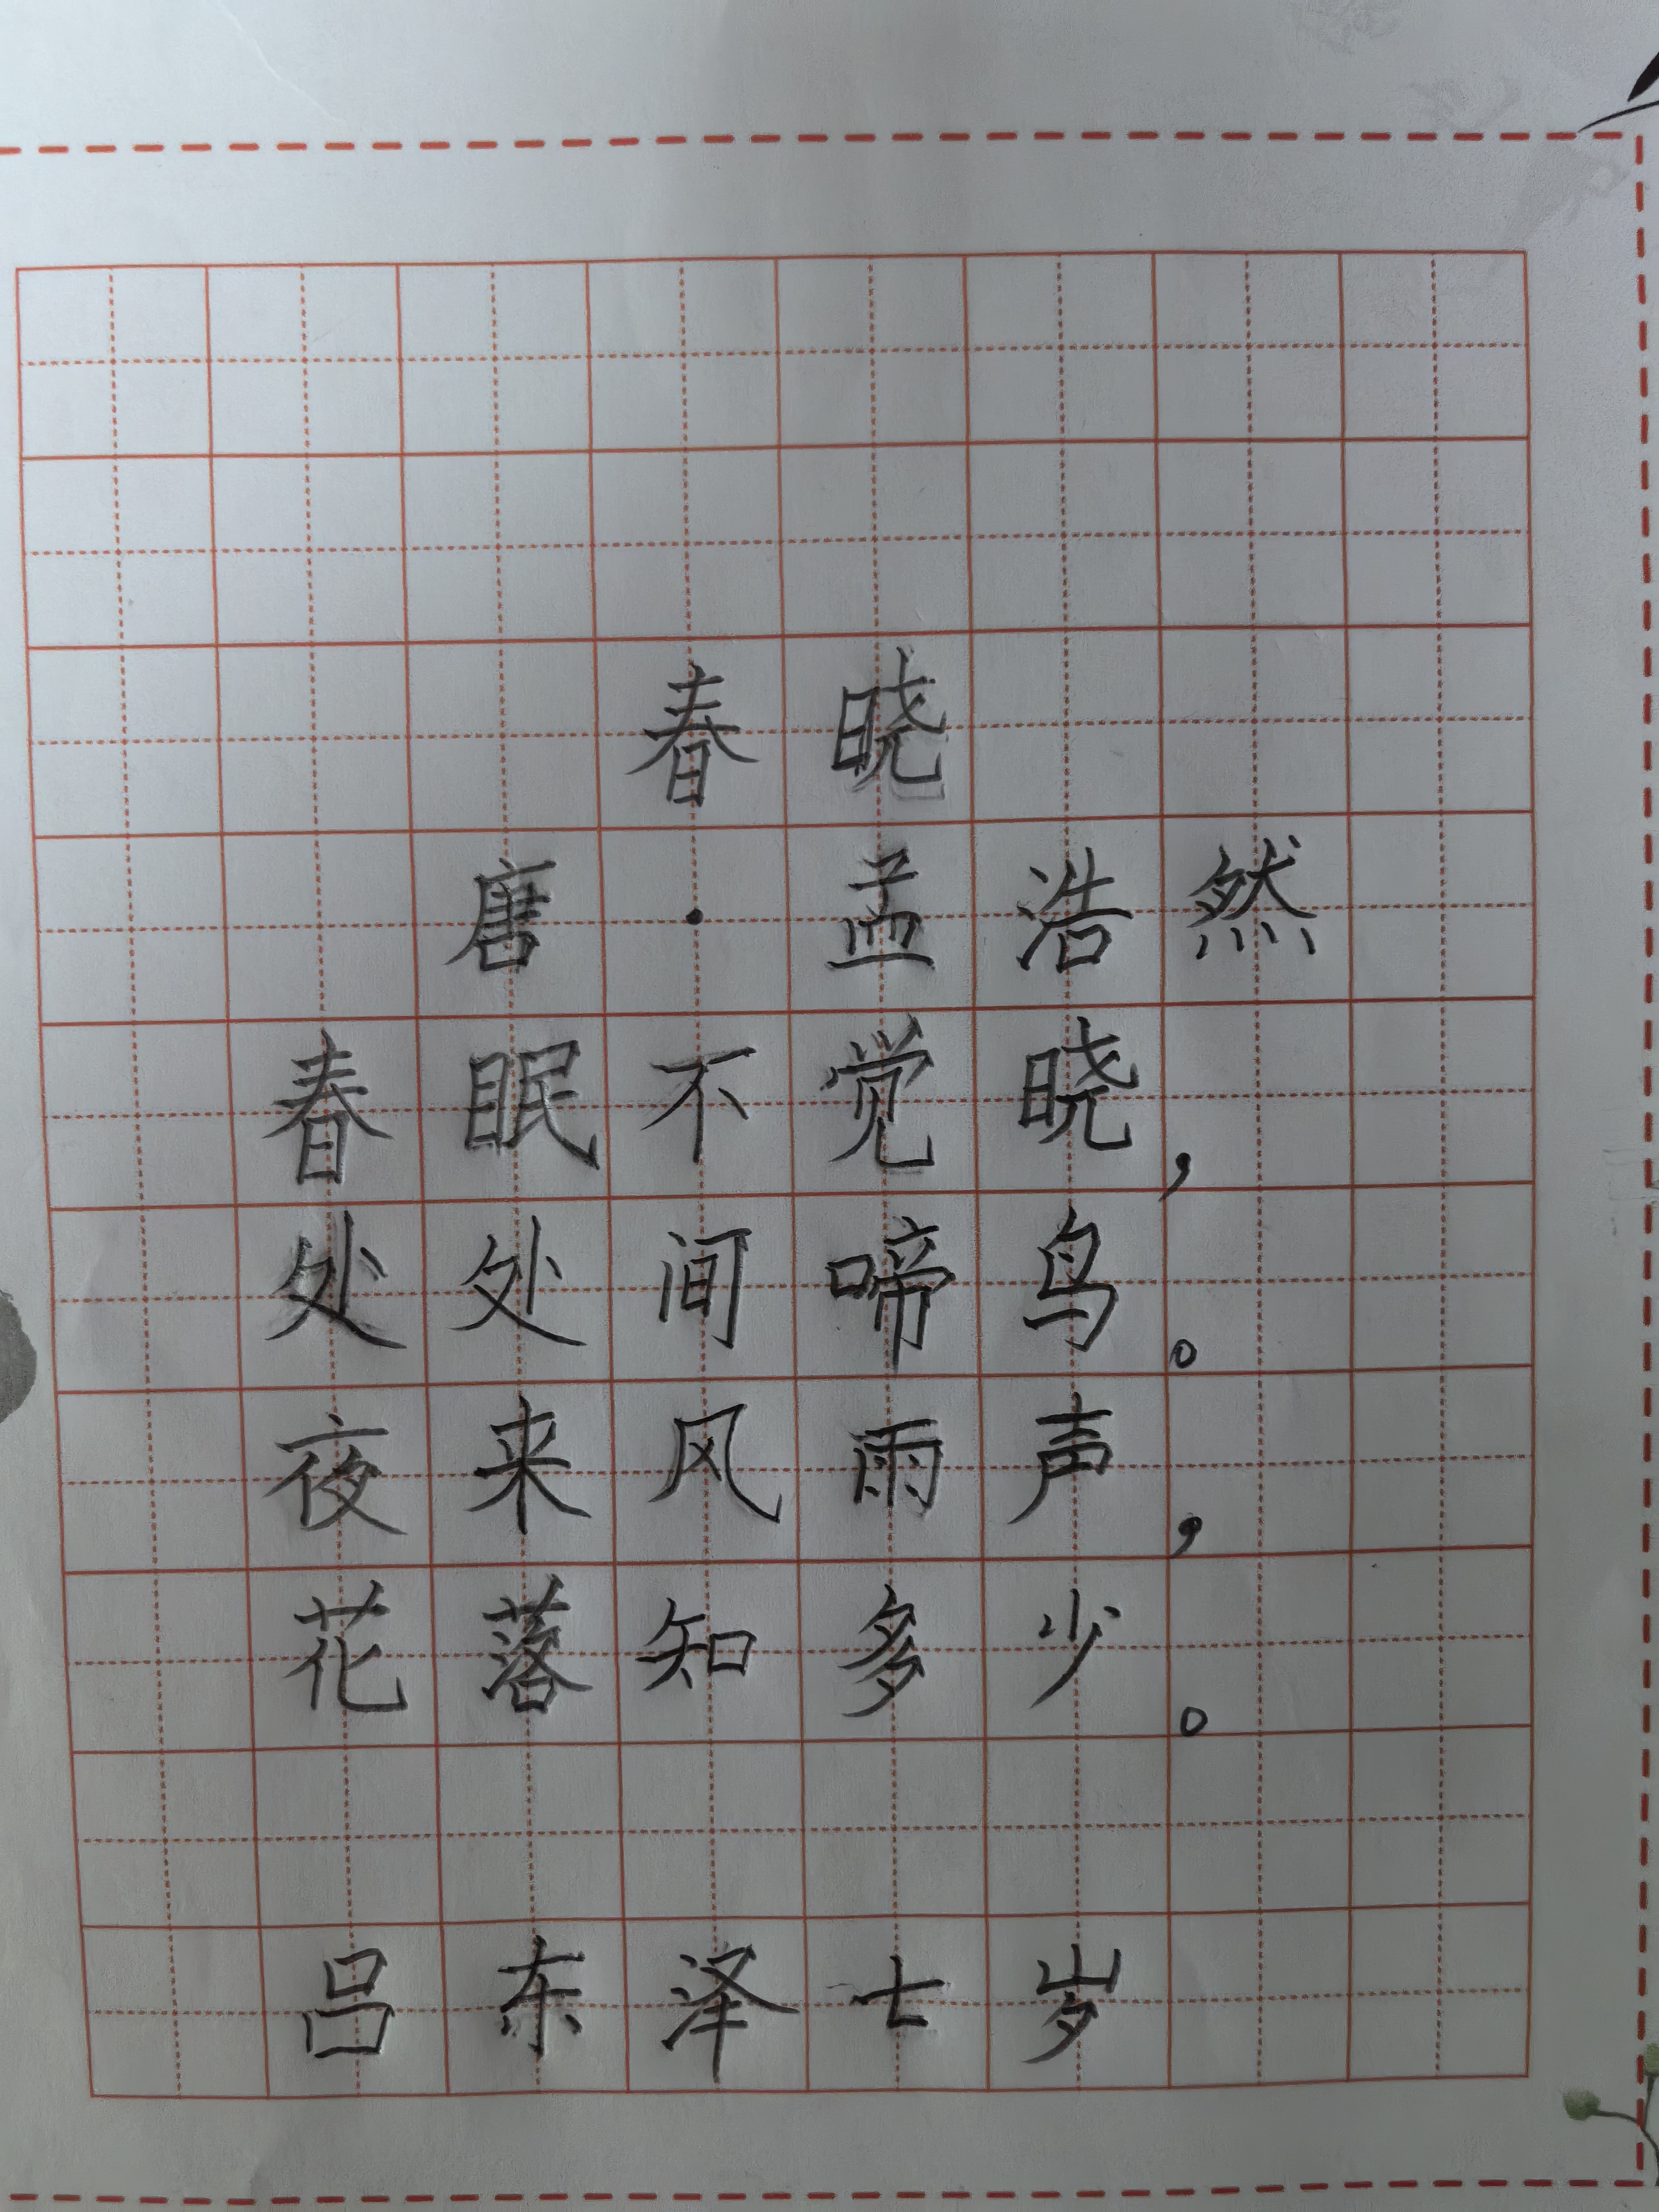 春晓
唐·孟浩然
春眠不觉晓，
处处间啼鸟。
夜来风雨声，
花落知多少。
吕东泽七岁